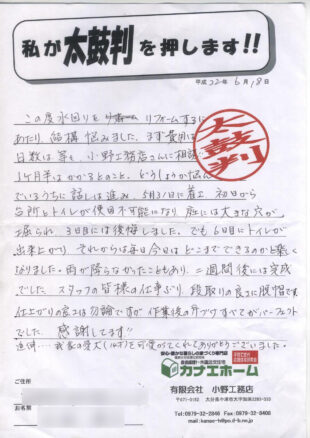 私が太鼓判を押します!!
平成22年6月18日
この度水回りをリフォームするに
あたり、結構悩みました。まず費用は
日数は等々、小野工務店さんに相談
1ケ月半はかかるとのこと、どうしようか悩ん
でいるうちに話しは進み、5月31日に着工、初日から
台所とトイレが使用不可能になり 庭には大きな穴が
掘られ、3日目には後悔しました。でも6日目にトイレが
出来上がり それからは毎日今日はどこまでできるのかと楽しく
なりました。雨が降らなかったこともあり、二週間後には完成
でした。スタッフの皆様の仕事ぶり、段取りの良さに脱帽です
仕上がりの良さは勿論ですが 作業後の片づけすべてがパーフェクト
でした。感謝してます!!
追伸…我家の愛犬(14才)を可愛がってくれてありがとうございました。
太鼓判
ご住所
お名前
安心・豊かな暮らしの家づくり専門店
長期優良・外張断熱住宅
カナエホーム
有限会社 小野工務店
〒871-0151 大分県中津市大字加来2283-533
Tel/0979-32-2846 Fax/0979-32-8408
mail/kanae-h@po.d-b.ne.jp